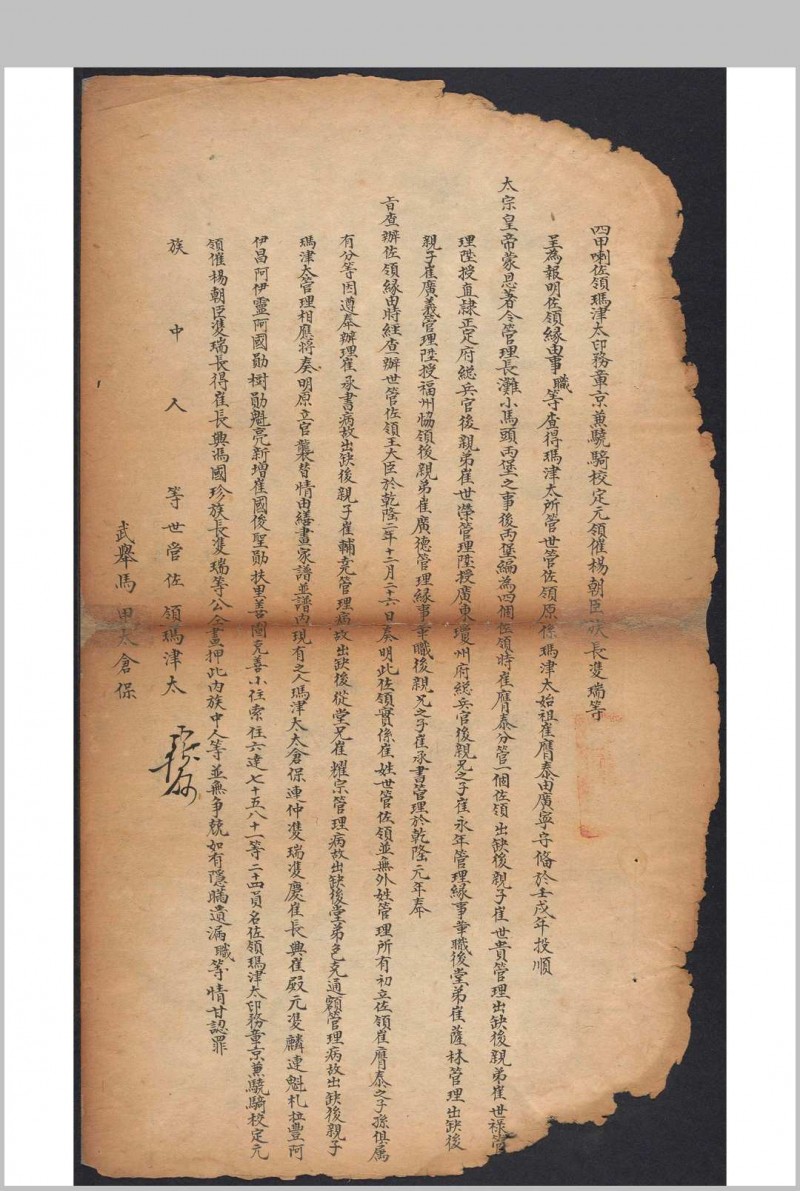 四甲喇佐領瑪津太印務章京兼驍騎校定元領催楊朝臣族長雙瑞等
呈為報明佐領緣由事職等查得瑪津太所管世管佐領原係瑪津太始祖崔膺泰由廣寧守偹於壬戌年投順
太宗皇帝蒙恩著令管理長灘小馬頭丙堡之事後丙堡編為四個佐領時崔膺泰分管一個佐領出缺後親子崔世貴管理出缺後親弟崔世祿管
理陞授直隷正定府総兵官後親弟崔世濚管理陞授廣東瓊州府総兵官後親兄之子崔永年管理緣事革職後堂弟崔薩林管理出缺後
親子崔廣義管理陞授福州恊領後親弟崔廣德管理緣事革職後親兄之子崔承書管理於乾隆元年奉
旨查辦佐領緣由時經查辦世管佐領王大臣於乾隆二年十二月二十六日奏明此佐領實係崔姓世管佐領並無外姓管理所有初立佐領崔膺泰之子孫俱属
有分等因遵奉辦理崔承書病故出缺後親子崔輔堯管理病故出缺後從堂兄崔耀宗管理病故出缺後堂弟色克通額管理病故出缺後親子
瑪津太管理相應將奏明原立官襲替情由繕畫家譜並譜內現有之人瑪津太太倉保連仲雙瑞雙慶崔長興崔殿元雙麟連魁札拉豊阿
伊昌阿伊靈阿國勛樹勛魁亮新增崔國俊聖勛扶里善圖克善小住索住六達七十五八十一等二十四員名佐領瑪津太印務章京兼驍騎校定元
領催楊朝臣雙瑞長得崔長興馮國珍族長雙瑞等公仝畫押此內族中人等並無爭競如有隱瞞遺漏職等情甘認罪
族中人等世管佐領瑪津太
武舉馬甲太倉保